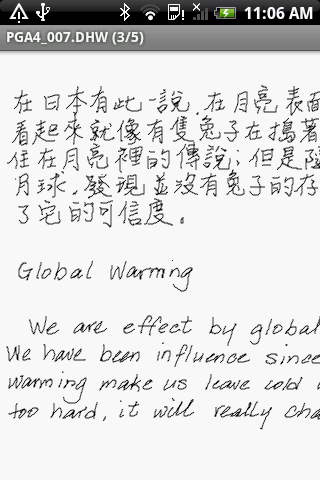 11:06 AM
PGA4_007.DHW (3/5)
在日本有此一說,在月亮表面
看起來就像有隻兔子在搗著
住在月亮裡的傳說;但是隨
月球,發現並沒有兔子的存
了它的可信度。
Global Warming
We are effect by global
We have been influence since
warming make us leave cold
too hard, it will really cha